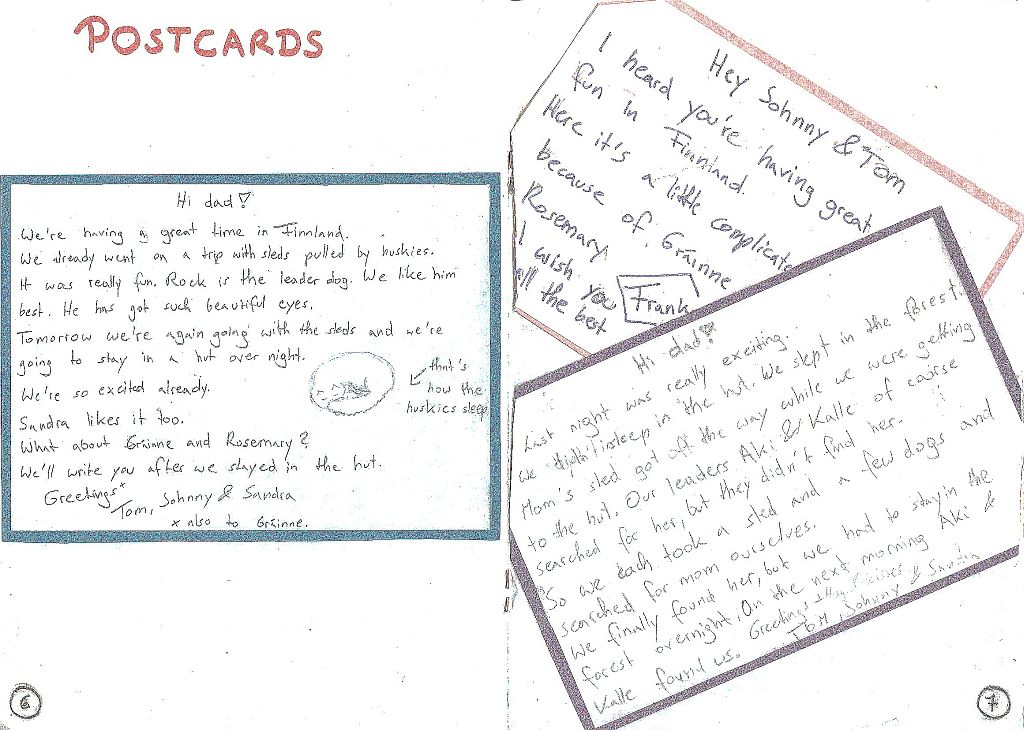 POSTCARDS
Hi dad!
We're having a great time in Finnland.
We already went on a trip with sleds pulled by huskies.
It was really fun. Rock is the leader dog. We like him
best. He has got such beautiful eyes.
Tomorrow we're again going with the sleds and we're
going to stay in a hut over night.
We're so excited already.
Sandra likes it too.
What about Gráinne and Rosemary?
We'll write you after we stayed in the hut.
Greetings*
Tom, Johnny & Sandra
x also to Gráinne.
that's
how the
huskies sleep
6
Hey Johnny & Tom
I heard you're having great
fun in Finnland.
Here it's a little complicate
because of Gráinne
Rosemary
I wish you
all the best
Frank
Hi dad!
Last night was really exciting.
We didn't sleep in the hut. We slept in the forest.
Mom's sled got off the way while we were getting
to the hut. Our leaders Aki & Kalle of course
searched for her, but they didn't find her.
So we each took a sled and a few dogs and
searched for mom ourselves.
We finally found her, but we had to stay in the
forest overnight. On the next morning Aki &
Kalle found us. Greetings
Tom, Johnny & Sandra
7